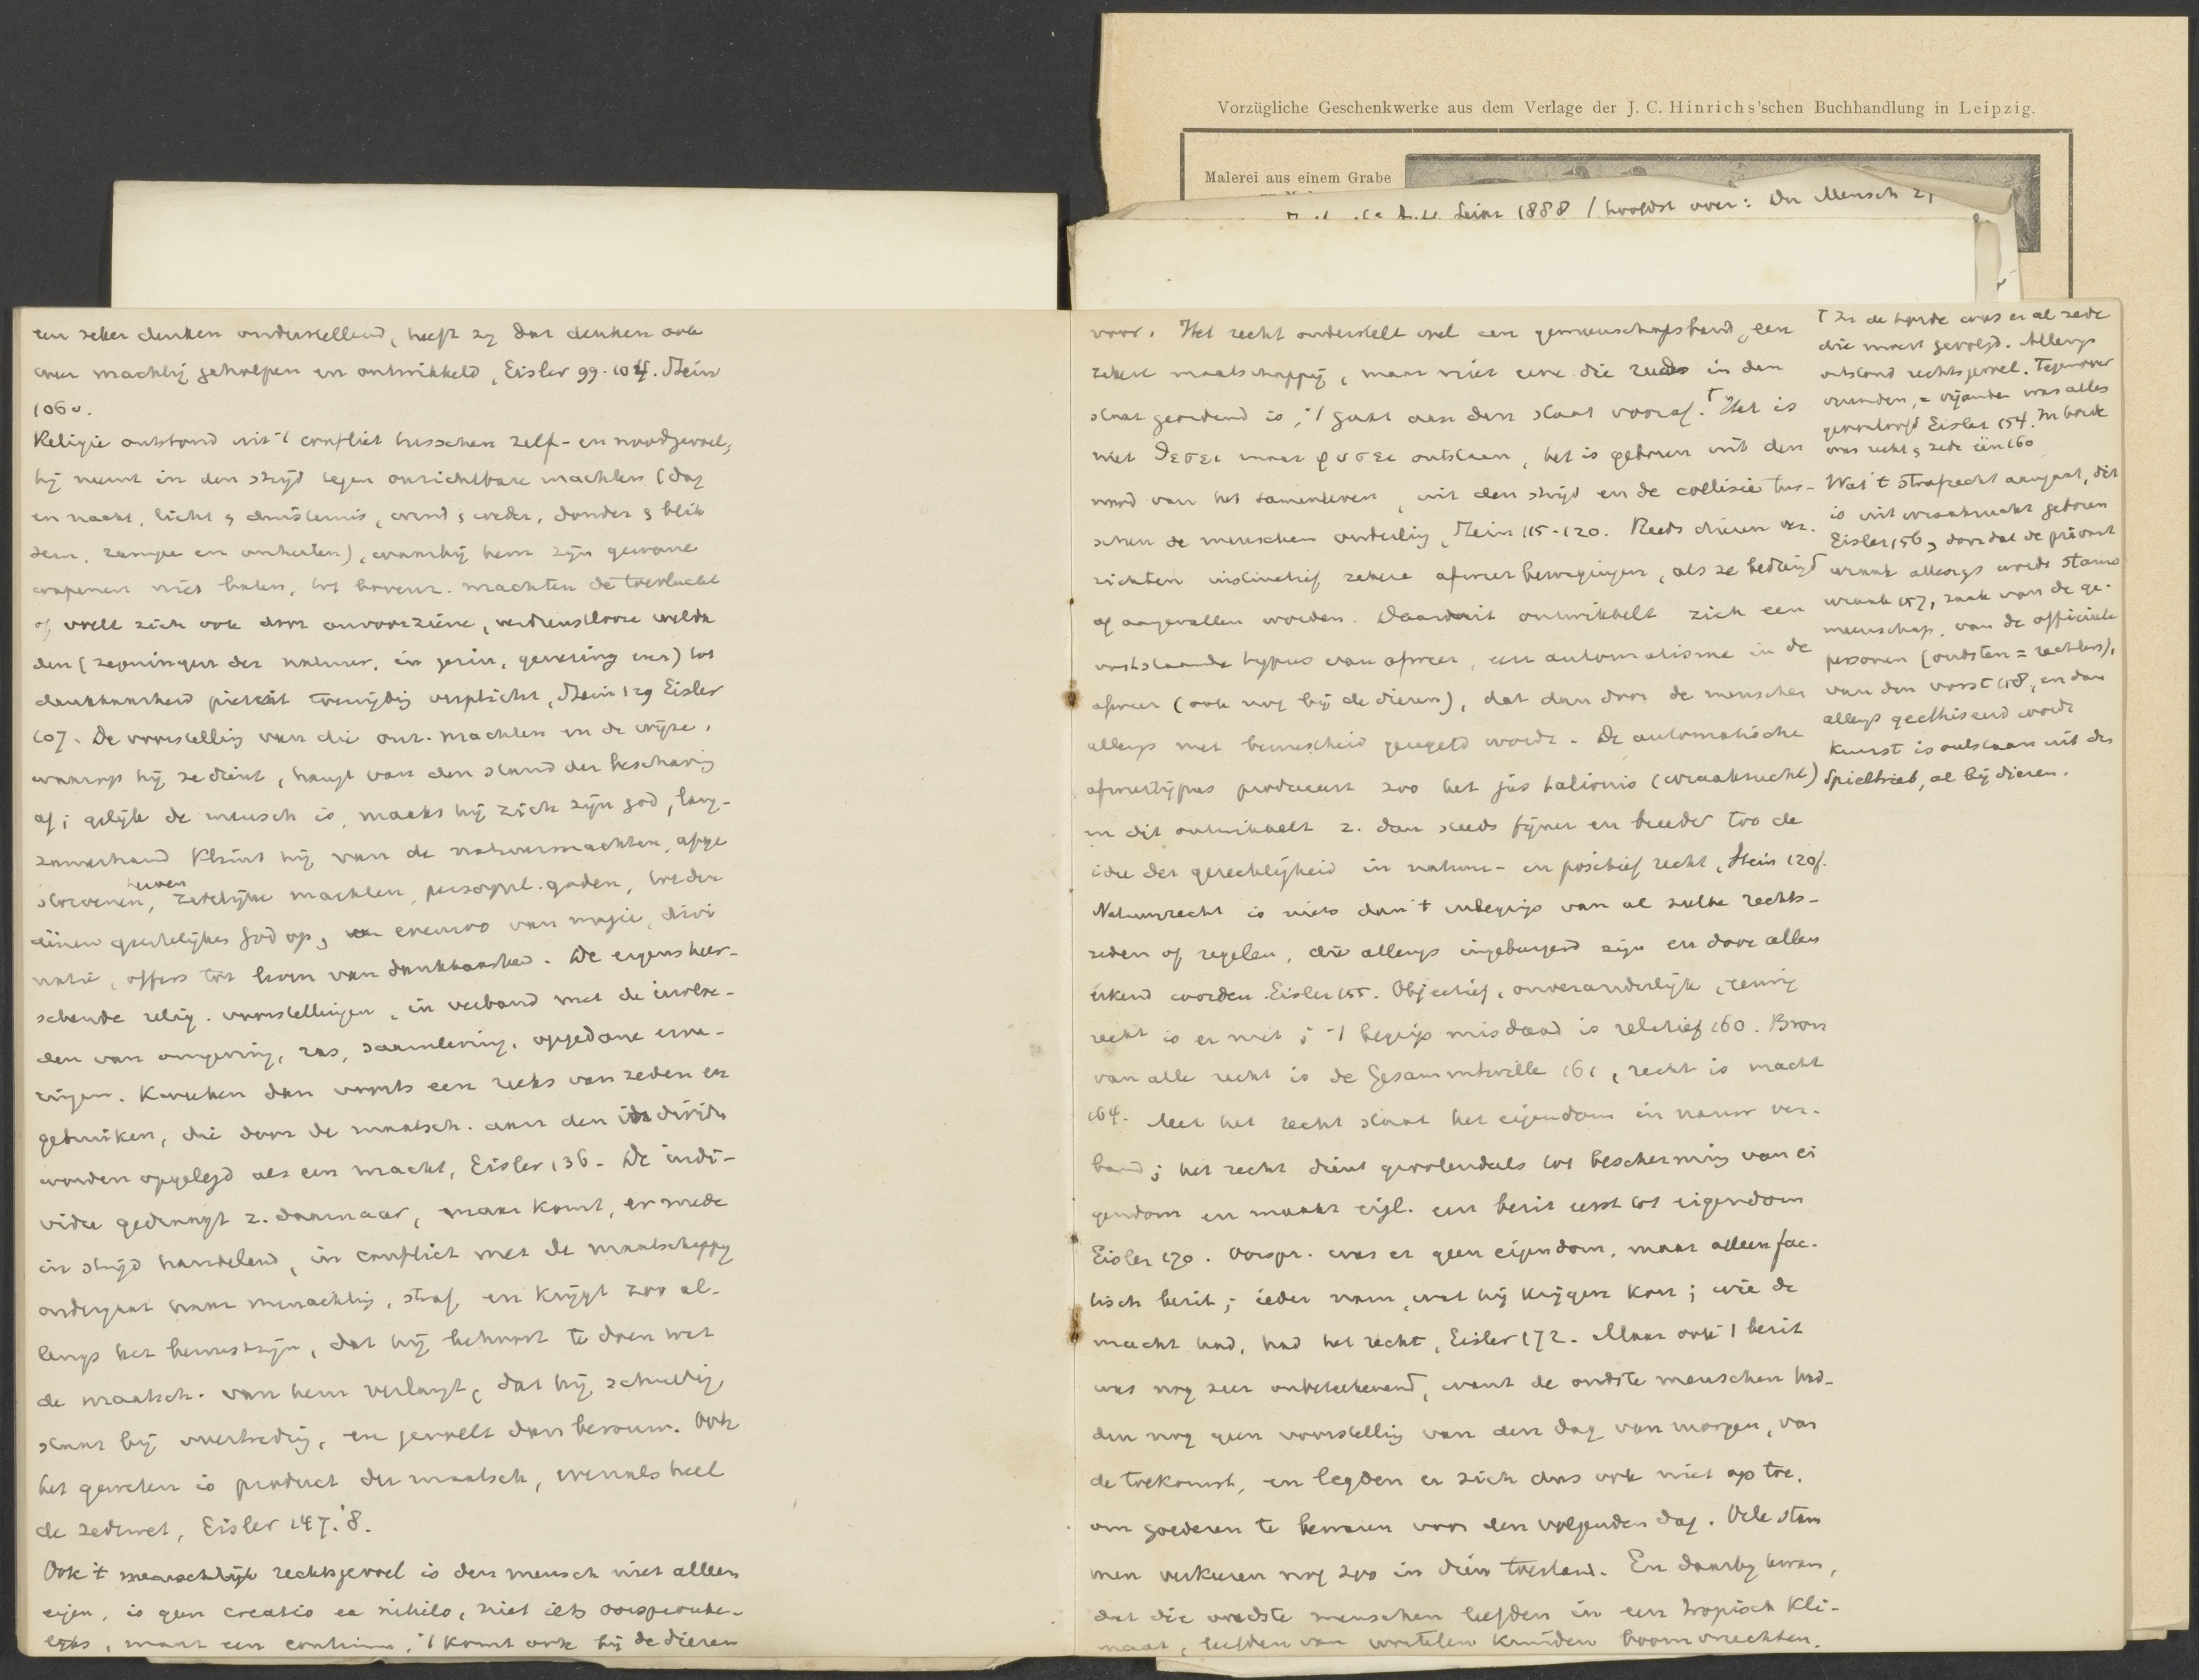 Vorzügliche Geschenkwerke aus dem Verlage der J. C. Hinrichs'schen Buchhandlung in Leipzig.
Malerei aus einem Grabe
Leipz 1888 / hoofdst over: Der Mensch
een zeker denken onderstellend, heeft zij dat denken ook
weer machtig geholpen en ontwikkeld, Eisler 99-104. Stein
106v.
Religie ontstond uit 't conflict tusschen zelf- en noodgevoel;
hij neemt in den strijd tegen onzichtbare machten (dag
en nacht, licht & duisternis, wind & weder, donder & blik
sem, rampen en onheilen), waarbij hem zijn gewone
wapenen niet baten, tot bovenn. machten de toevlucht
of voelt zich ook door onvoorziene, verdienstlooze welda
den (zegeningen der natuur, in gezin, genezing enz) tot
dankbaarheid pieteit verpligt, Stein 129 Eisler
107. De voorstelling van die onz. machten en de wijze,
waarop hij ze dient, hangt van den stand der beschaving
af; gelijk de mensch is, maakt hij zich zijn god, lang-
zamerhand klimt hij van de natuurmachten, afge
storvenen, heroen zedelijke machten, persoonl. goden, tot den
éénen geestelijken God op, evenzoo van magie, divi
natie, offers tot leven van dankbaarheid. De eigens heer-
schende relig. voorstellingen, in verband met de invloe-
den van omgeving, ras, samenleving, opgedane erva-
ringen. Kweeken dan voorts een reeks van zeden en
gebruiken, die door de maatsch. aan den individu
worden opgelegd als een macht, Eisler 136. De indi-
vidu gedraagt z. daarnaar, maar komt, er mede
in strijd handelend, in conflict met de maatschappij
ondergaat haar minachting, straf, en krijgt zoo al-
lengs het bewustzijn, dat hij behoort te doen wat
de maatsch. van hem verlangt, dat hij schuldig
staat bij overtreding, en gevoelt dan berouw. Ook
het geweten is product der maatsch, evenals heel
de zedewet, Eisler 147.'8.
Ook 't menschelijk rechtsgevoel is den mensch niet alleen
eigen, is geen creatio ex nihilo, niet iets oorspronke-
lijks, maar een continuu, 't komt ook bij de dieren
voor. Het recht onderstelt wel een gemeenschapsband, een
zekere maatschappij, maar niet eene die reeds in den
staat geordend is, 't gaat aan den staat vooraf. Het is
niet θεσει maar φυσει ontstaan, het is geboren uit den
nood van het samenleven, uit den strijd en de collisie tus-
schen de menschen onderling, Stein 115-120. Reeds dieren ver-
richten instinctief zekere afweerbewegingen, als ze bedreigd
of aangevallen worden. Daaruit ontwikkelt zich een
vaststaande typus van afweer, een automatisme in de
afweer (ook nog bij de dieren), dat dan door de menschen
allengs met bewustheid geregeld wordt. De automatische
afweertypus produceert zoo het jus talionis (wraakrecht)
en dit ontwikkelt z. dan steeds fijner en breeder tot de
idee der gerechtigheid in natuur- en positief recht, Stein 120f.
Natuurrecht is niets dan 't inbegrip van al zulke rechts-
zeden of regelen, die allengs ingeburgerd zijn en door allen
erkend worden. Eisler 155. Objectief, onveranderlijk, eeuwig
recht is er niet; 't begrip misdaad is relatief 160. Bron
van alle recht is de Gesammtwille 161, recht is macht
164. Met het recht staat het eigendom in nauw ver-
band; het recht dient grootendeels tot bescherming van ei
gendom en maakt eigl. een bezit eerst tot eigendom
Eisler 170. Oorspr. was er geen eigendom, maar alleen fac-
tisch bezit; ieder nam, wat hij krijgen kon; wie de
macht had, had het recht, Eisler 172. Maar ook 't bezit
was nog zeer onbeteekenend, want de oudste menschen had-
den nog geen voorstelling van den dag van morgen, van
de toekomst, en legden er zich dus ook niet op toe,
om goederen te bewaren voor den volgenden dag. Vele stam
men verkeeren nog zoo in dien toestand. En daarbij kwam,
dat die oudste menschen leefden in een tropisch kli-
maat, leefden van wortelen kruiden boomvruchten.
⌈ In de horde was er al zede
die moest gevolgd. Allengs
ontstond rechtsgevoel. Tegenover
vreemden, = vijanden was alles
geoorloofd Eisler 154. In horde
was recht & zede één 160
Wat 't strafrecht aangaat, dit
is uit wraakzucht geboren
Eisler 156, doordat de privaat
wraak allengs werd stam
wraak 157, zaak van de ge-
meenschap, van de officieele
personen (oudsten = rechters),
van den vorst 158, en dan
allengs geethiseerd wordt
Kunst is ontstaan uit den
Spieltrieb, al bij dieren.